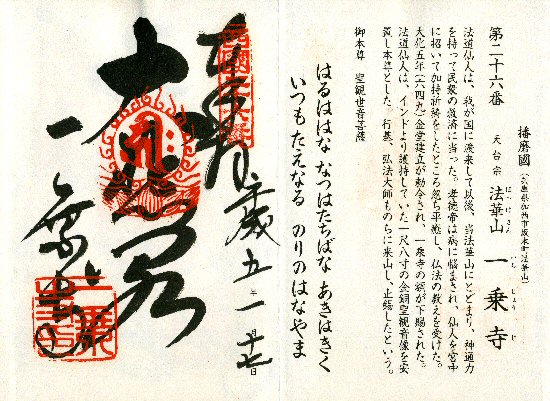 播磨國 (兵庫県加西市坂本町法華山)
第二十六番 天台宗 法華山 一乗寺
ほっけさん いちじょうじ
法道仙人は、我が国に渡来して以後、当法華山にとどまり、神通力
を持って民衆の救済に当った。孝徳帝は病に悩まされ、仙人を宮中
に招いて加持祈祷をしたところ忽ち平癒し、仏法の教えを受けた。
大化五年(六四九)金堂建立が勅令され、一乗寺の額が下賜された。
法道仙人は、インドより護持していた一尺八寸の金銅聖観音像を安
置し本尊とした。行基、弘法大師ものちに来山し、止錫したという。
御本尊 聖観世音菩薩
はるははな なつはたちばな あきはきく
いつもたえなる のりのはなやま
奉拝
平成五年一月十七日
大悲閣
一乗寺